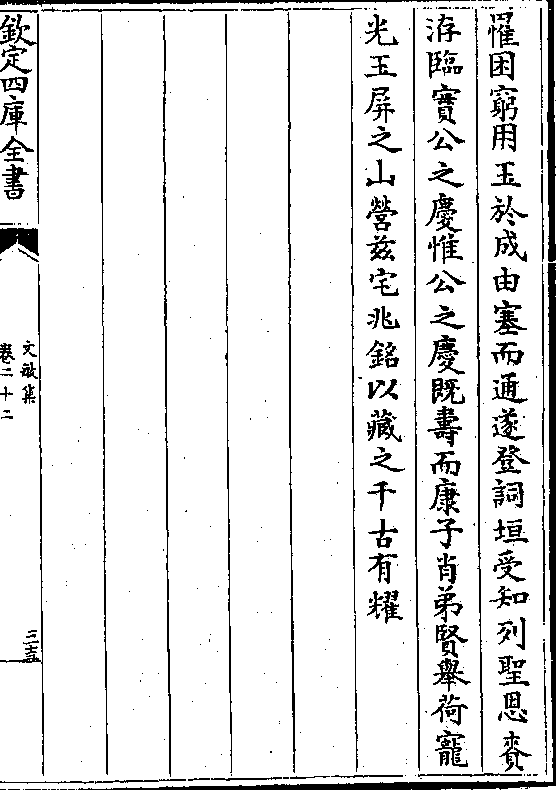 罹困窮用玉於成由塞而通遂登詞垣受知列聖恩賚
洊臨實公之慶惟公之慶既壽而康子肖弟賢舉荷寵
光玉屏之山營兹宅兆銘以藏之千古有耀
欽定四庫全書
文敏集
卷二十二